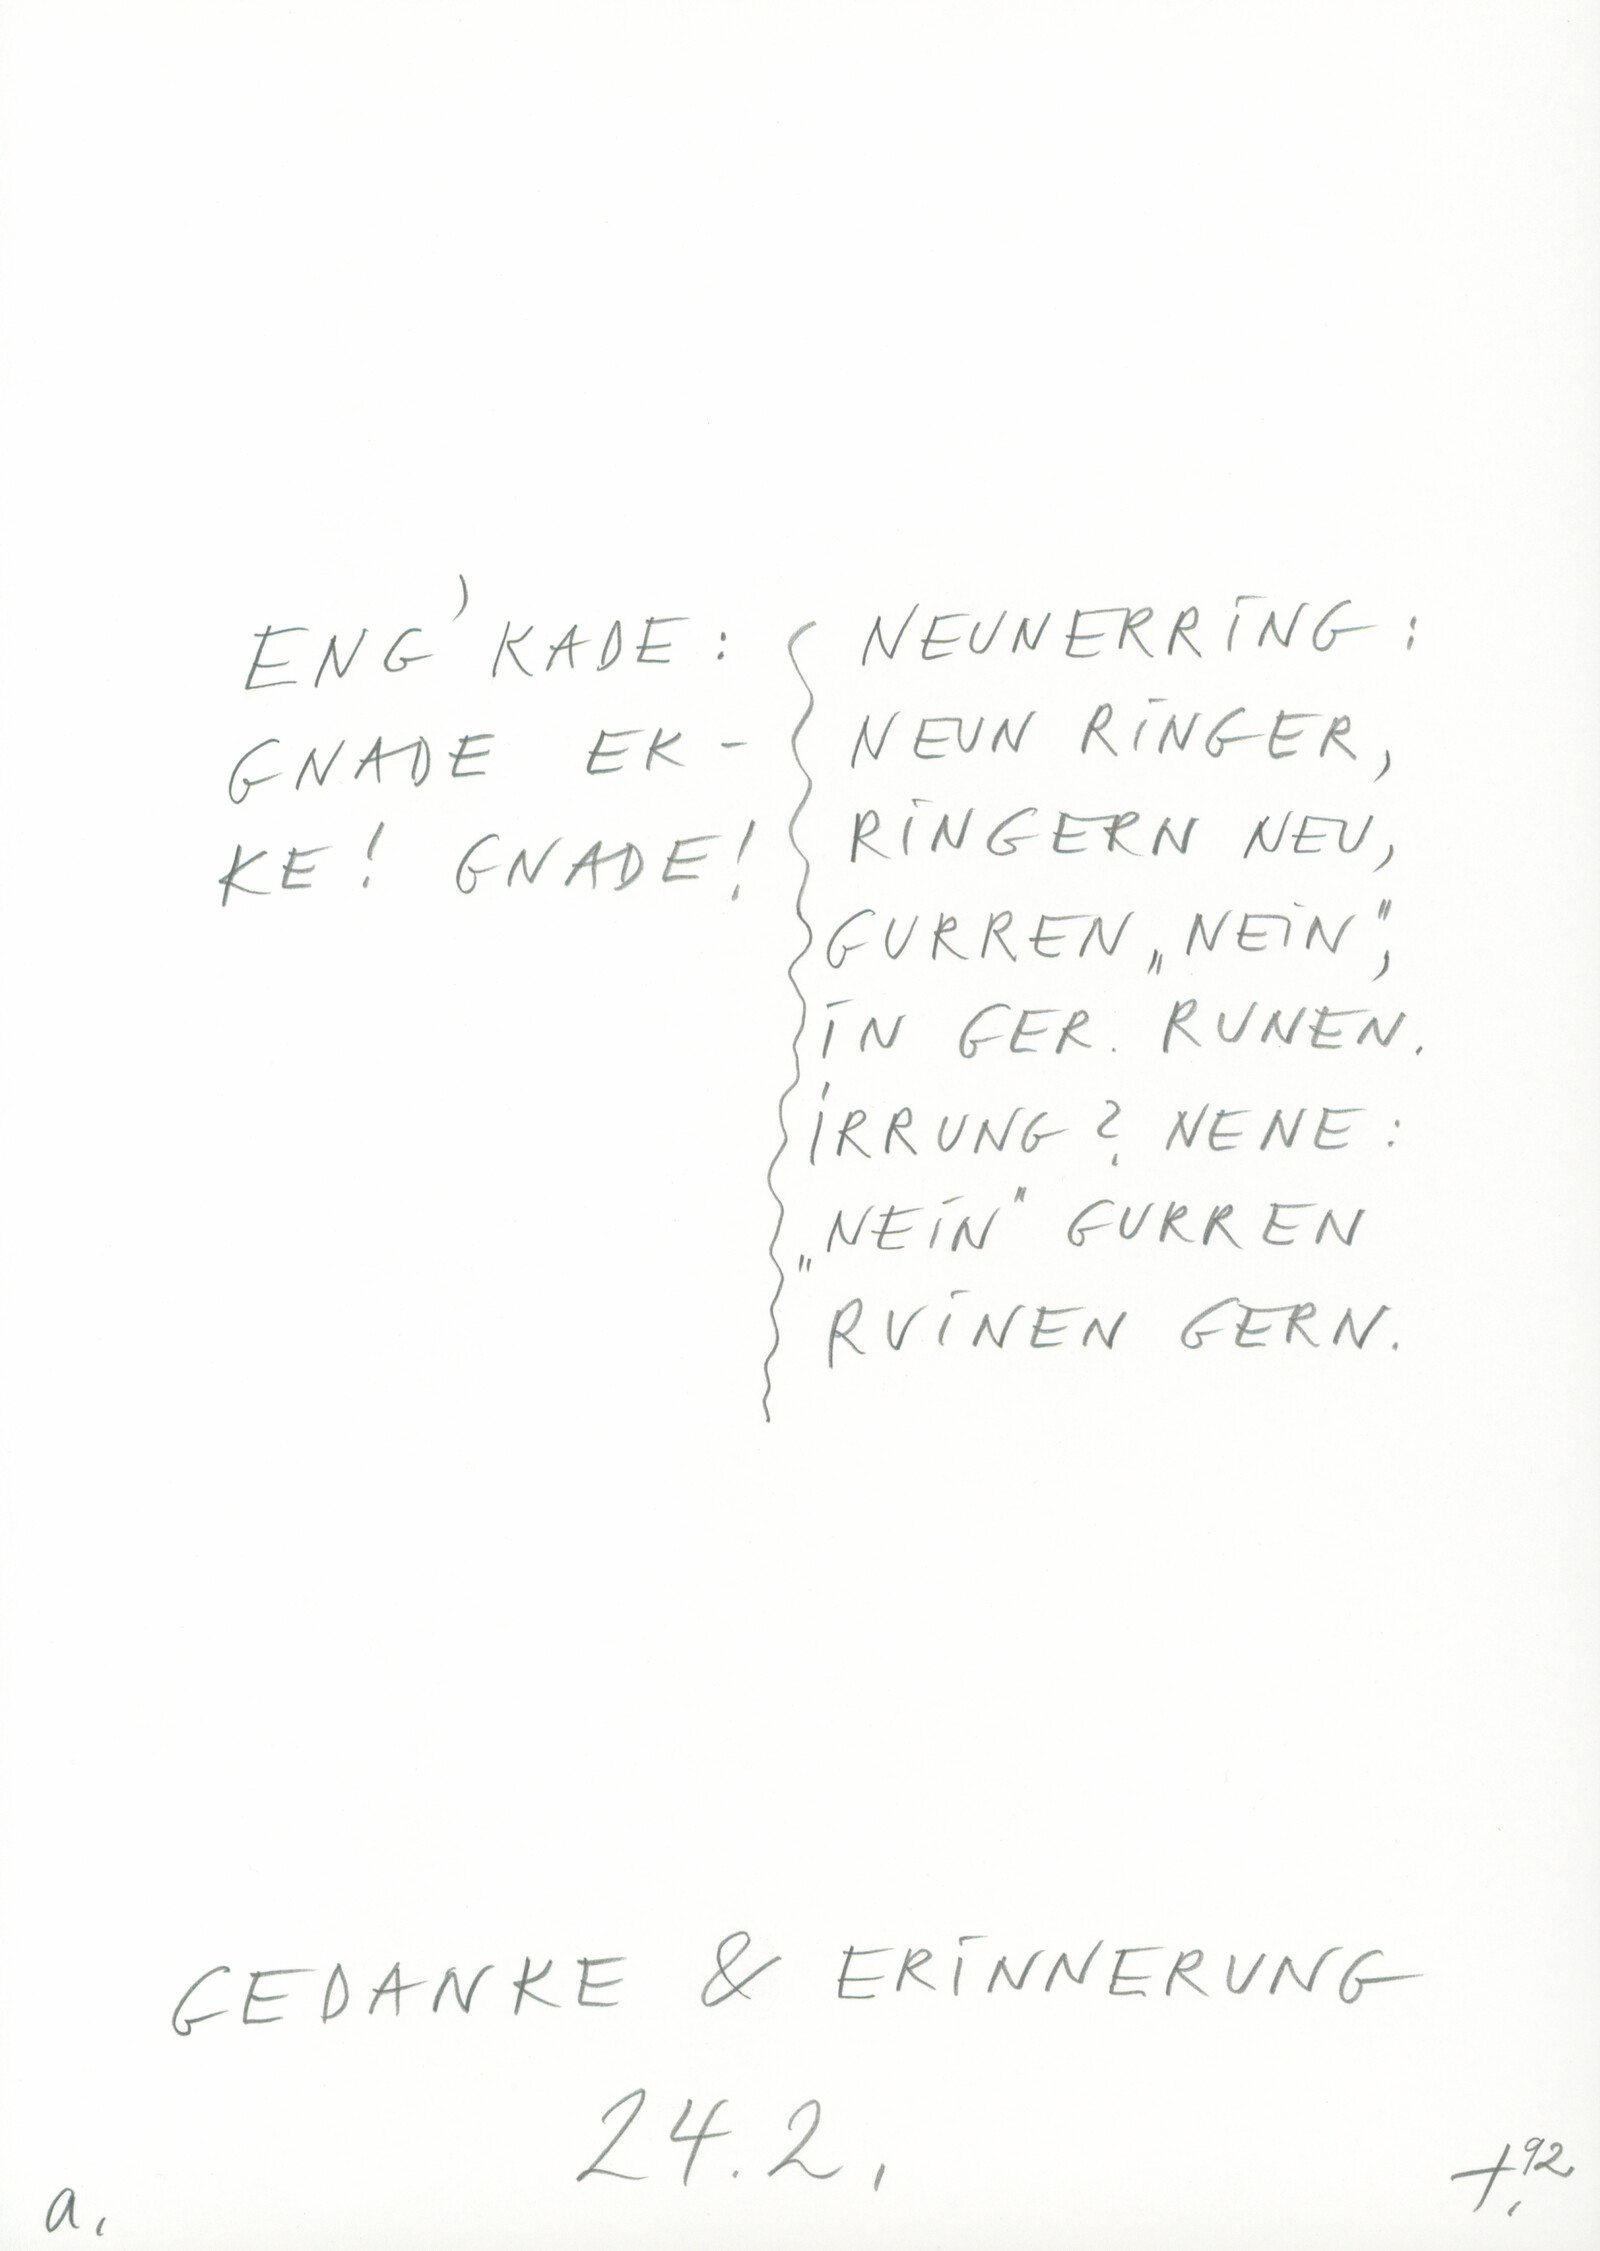 ENG' KADE:
GNADE EK-
KE! GNADE!
NEUNERRING:
NEUN RINGER,
RINGERN NEU,
GURREN „NEIN",
IN GER. RUNEN.
IRRUNG? NENE:
„NEIN" GURREN
RUINEN GERN.
GEDANKE & ERINNERUNG
24.2.
a.
t.92